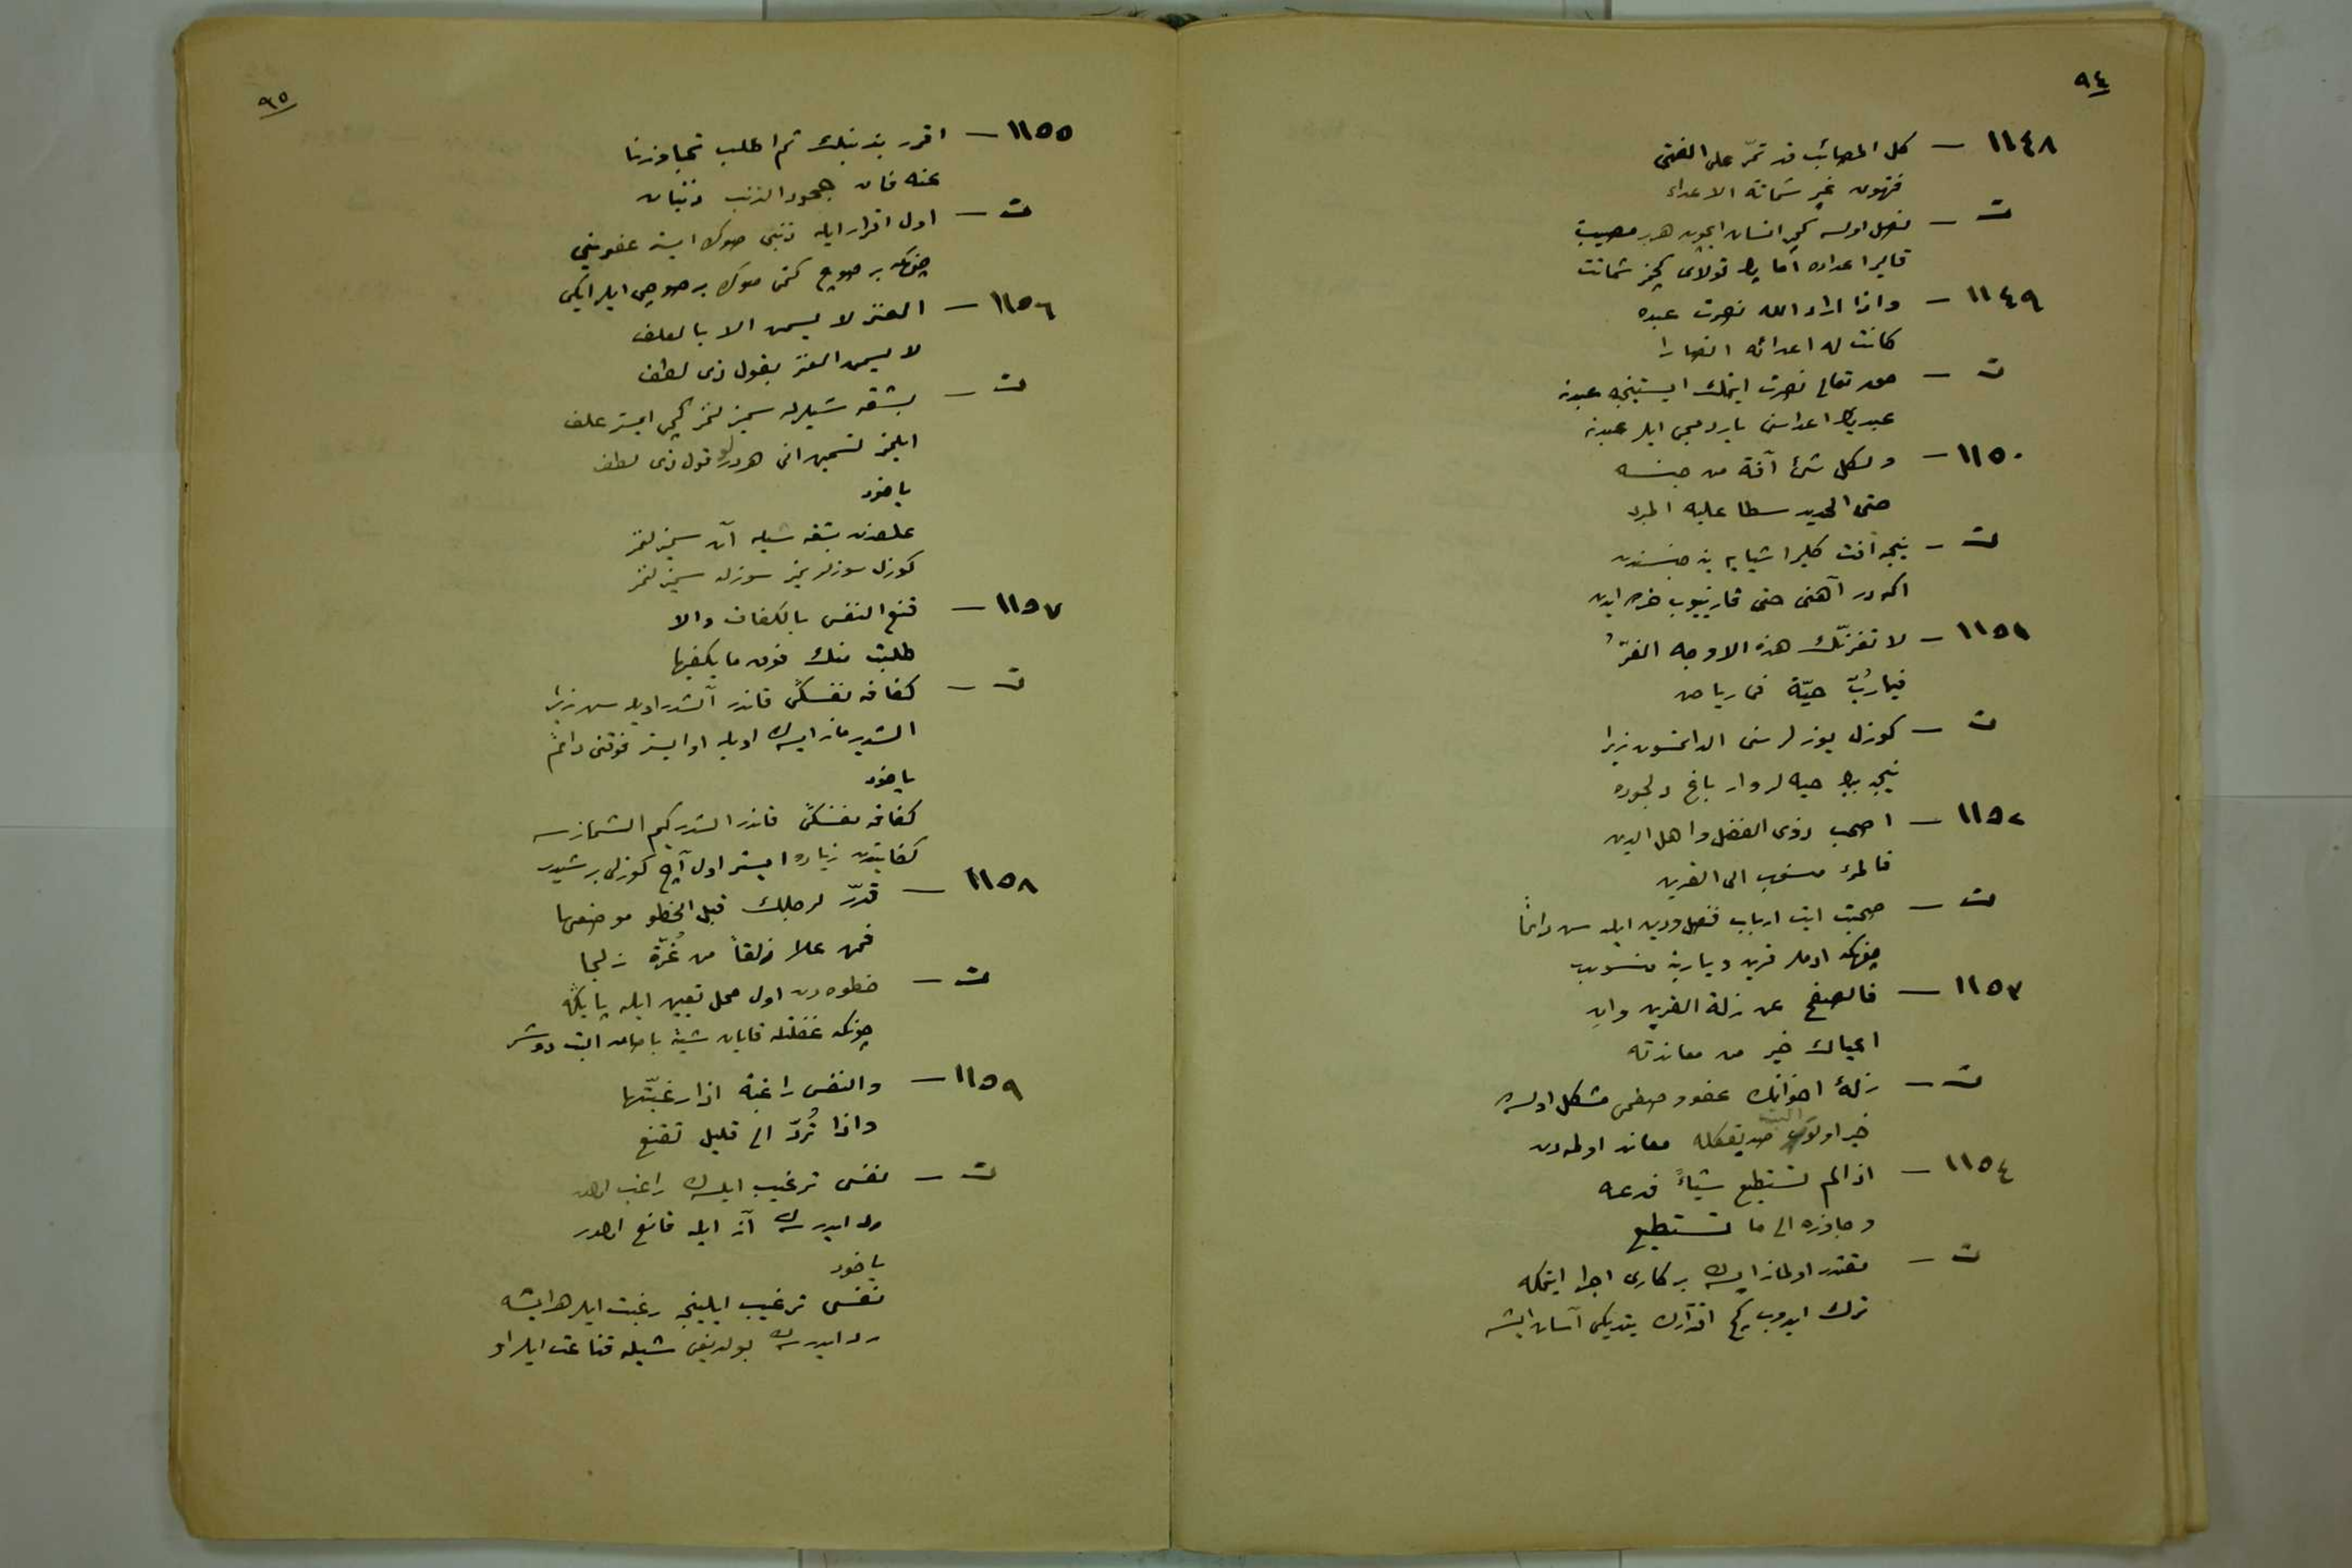 ٩٤
١١٤٨ — كل المصائب قد تمرّ على الفتى
فتهون غير شماتة الاعداء
ت — فصل اولسه كچر انسان ايچون هر بر مصيبت
قالير اعداده اما پك قولاى كچمز شماتت
١١٤٩ — واذا اراد الله نصرت عبده
كانت له اعدائه انصارا
ت — حق تعالى نصرت ايتمك ايستينجه عبدينه
عبدينك اعداسى ياردمجى ايلر عبدينه
١١٥٠ — ولكل شئ آفة من جنسه
حتى الحديد سطا عليه المبرد
ت — نيجه آفت كلير اشيايه ينه جنسندن
اكه در آهنى حتى قازييوب خرده ايدن
١١٥١ — لا تغرنّك هذه الاوجه الغرُّ
فيا رُبّ حيّة فى رياض
ت — كوزل يوزلر سنى الداتمسون زيرا
نيجه بيك حيه لر وار باغ دلجوده
١١٥٢ — اصحب ذوى الفضل واهل الدين
فالمرء منسوب الى القرين
ت — صحبت ايت ارباب فضل ودين ايله سن دائماً
چونكه ادملر قرين ويارينه منسوبدر
١١٥٣ — فالصفح عن زلة القرين وان
اعياك خير من معاندته
ت — زلۀ اخوانكه عفو و صفحى مشكل اولسه ده
خير اولور البت صديقكله معاند اولمه دن
١١٥٤ — اذا لم تستطيع شيئاً فدعه
وجاوزه الى ما تستطيع
ت — مقتدر اولماز ايسه ك بر كارى اجرا ايتمكه
ترك ايدوب كچ اقتدارك يتديكى آسان ايشه
٩٥
١١٥٥ — اقرر بذنبك ثم اطلب تجاوزنا
عنه فان جحود الذنب ذنبان
ت — اول اقرار ايله ذنبى صوكره ايسته عفوينى
چونكه بر صوچ كتمى صوكره بر صوچى ايلر ايكى
١١٥٦ — العنز لا يسمن الا بالعلف
لا يسمن العنز بقول ذى لطف
ت — بشقه شيلرله سميزلنمز كچى ايستر علف
ايلمز تسمين انى هر درلو قول ذى لطف
ياخود
علفدن بشقه شيله آن سميزلنمز
كوزل سوزلر يمز سوزله سميزلنمز
١١٥٧ — قنع النفس بالكفاف والا
طلبت منك فوق ما يكفيها
ت — كفافه نفسكى قاندر آلشدر اويله سن زيرا
الشديرماز ايسه ك اويله او ايستر فوقنى دائم
ياخود
كفافه نفسكى قاندر الشدر كيم الشمازسه
كفايتدن زياده ايستر اول آچ كوزلى بر شيدر
١١٥٨ — قدّر لرجلك قبل الخطو موضعها
فمن علا زلقاً من غُرّة زلجا
ت — خطوه دن اول محل تعيين ايله پايكه
چونكه غفلتله قايان شيئه باصان البت دوشر
١١٥٩ — والنفس راغبة اذا رغبّتها
واذا تُردّ الى قليل تقنع
ت — نفسى ترغيب ايلسه ك راغب اولور
رد ايدرسه ك آزه ايله قانع اولور
ياخود
نفسى ترغيب ايلينجه رغبت ايلر هر ايشه
رد ايدرسه ك بولديغى شيله قناعت ايلر او